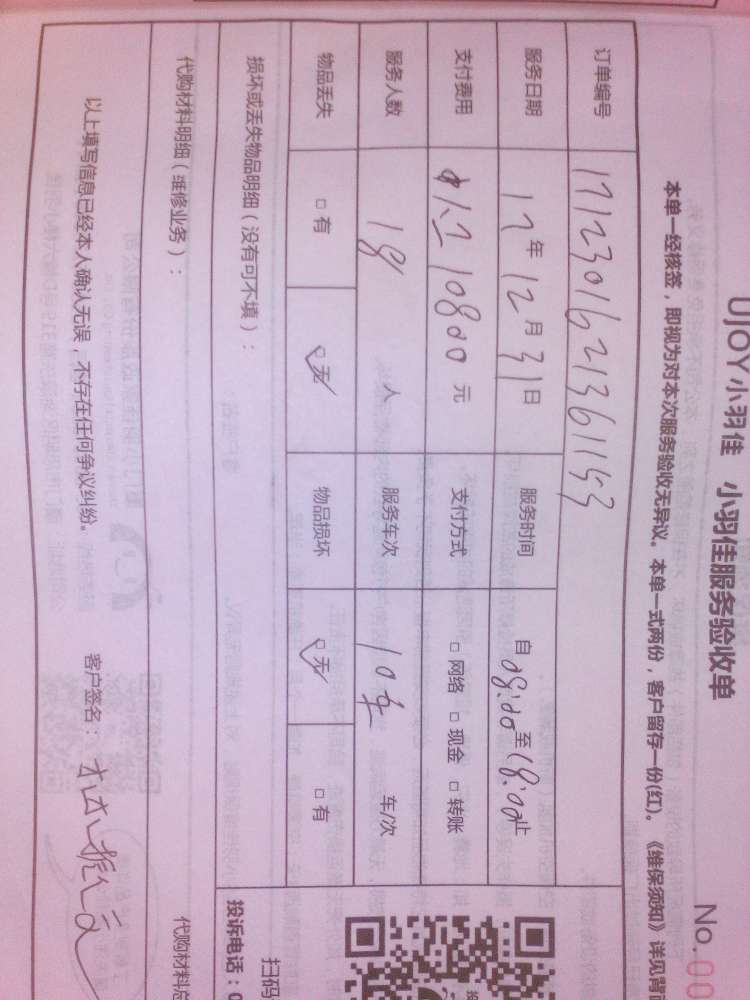 UJOY小羽佳 小羽佳服务验收单
No. 00
本单一经核签，即视为对本次服务验收无异议。本单一式两份，客户留存一份(红)。《维保须知》详见背
订单编号 1712301621361153
服务日期 17年12月31日 服务时间 自08:00至18:00止
支付费用 10800元 支付方式 □网络 □现金 □转账
服务人数 18人 服务车次 10车 车/次
物品丢失 □有 □无 物品损坏 □无 □有
损坏或丢失物品明细（没有可不填）：
扫码
投诉电话：0
代购材料明细（维修业务）：
代购材料总
以上填写信息已经本人确认无误，不存在任何争议纠纷。 客户签名：